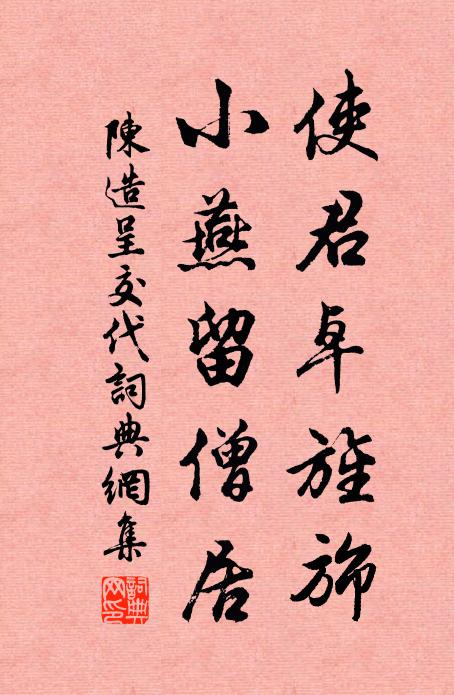 使君卓旌旆
小燕留僧居
陳造呈交代詞典網集
詞典网印